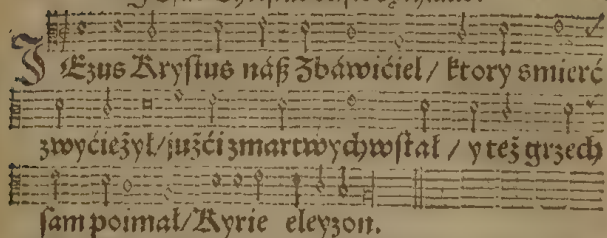 JEzus Krystus náß Zbáwićiel / ktory smierć
zwyćiężył / jużći zmartwychwstał / y też grzech
sam poimał / Kyrie eleyzon.